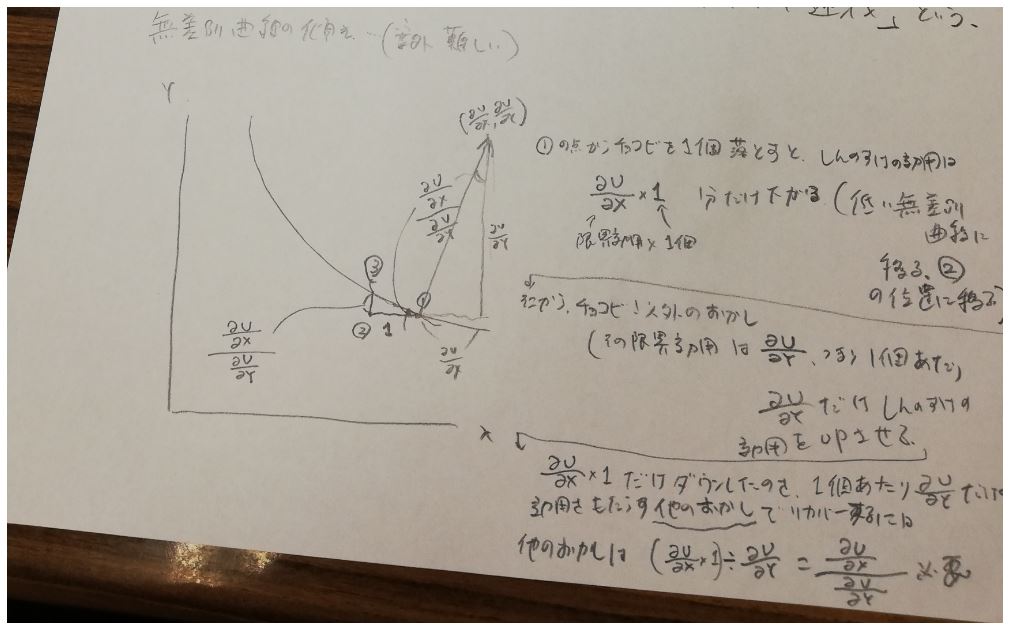 無差別曲線の傾き…(意外難しい)
Y
(∂U/∂X, ∂U/∂Y)
∂U/∂X
∂U/∂Y
③
②
1
①
∂U/∂X
∂U/∂Y
∂U/∂X
X
①の点からチョコビを1個落とすと、しんのすけの効用は
∂U/∂X × 1 分だけ下がる(低い無差別
限界効用×1個
曲線に
移る、②
の位置に移る)
そこから、チョコビ以外のおかし
(その限界効用は ∂U/∂Y、つまり1個あたり
∂U/∂Y だけしんのすけの
効用をUPさせる
∂U/∂X × 1 だけダウンしたのを、1個あたり ∂U/∂Y だけ
効用をもたらす他のおかしでリカバーするには
他のおかしは (∂U/∂X × 1) ÷ ∂U/∂Y = ∂U/∂X / ∂U/∂Y 必要